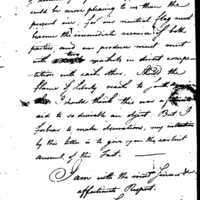 could be more pleasing to us than the
present one; for our neutral flag must
become the immediate
parties, and our produce must meet
with markets in direct compe-
tition with each other. Should the
flame of liberty
I should think this was
aid to so desirable an object. But I
forbear to make observations, my
by this letter is to give you the earliest
account, of this fact.
I am with the most sincere &
affectionate Respect.